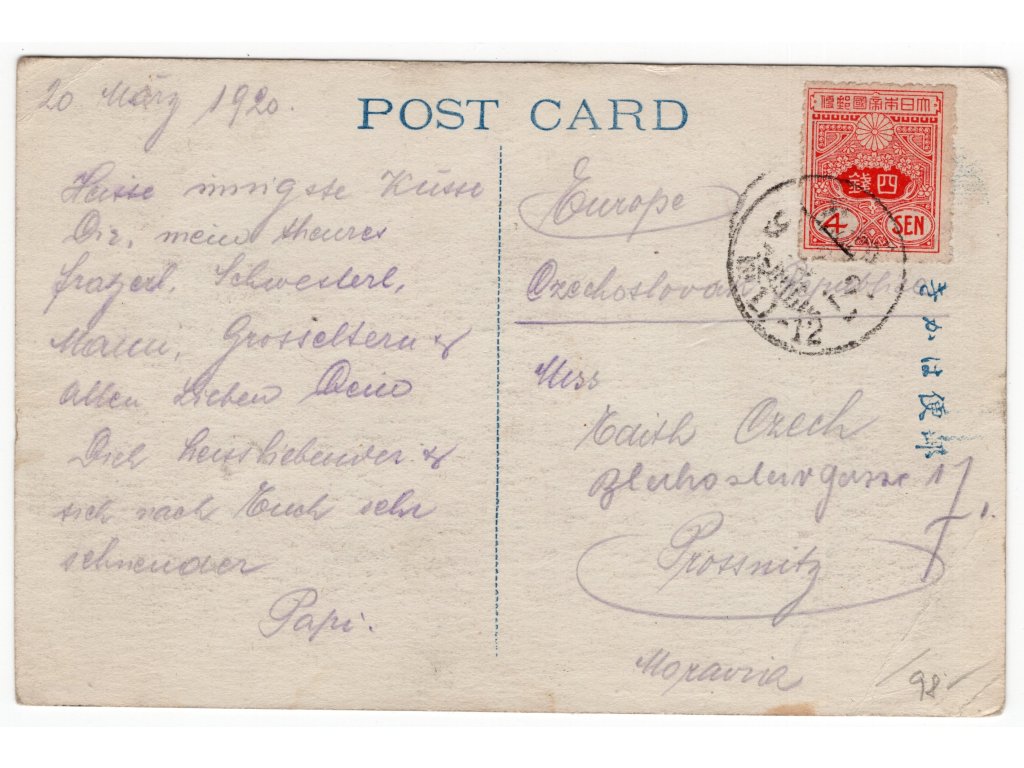 20 März 1920.
POST CARD
Heisse innigste Küsse
Dir, mein theures
fratzerl, Schwesterl,
Mama, Grosseltern &
allen Lieben Dein
Dich heissliebender &
sich nach Euch sehr
sehnender
Papi.
Europe
Czechoslovak Republic
Miss
Edith Czech
17
Prossnitz
Moravia
98
大日本帝國郵便
四錢
4 SEN
11-12
きかは便郵